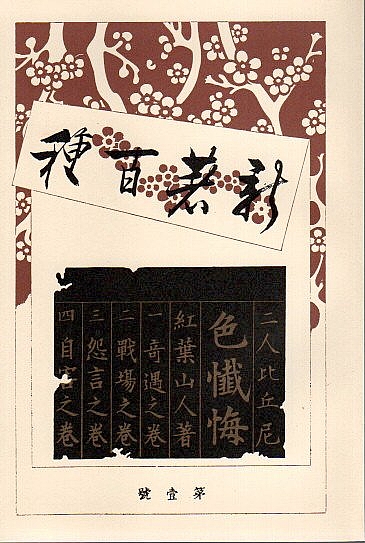 新著百種
二人比丘尼
色懺悔
紅葉山人著
一奇遇之巻
二戰場之巻
三怨言之巻
四自害之巻
第壹號